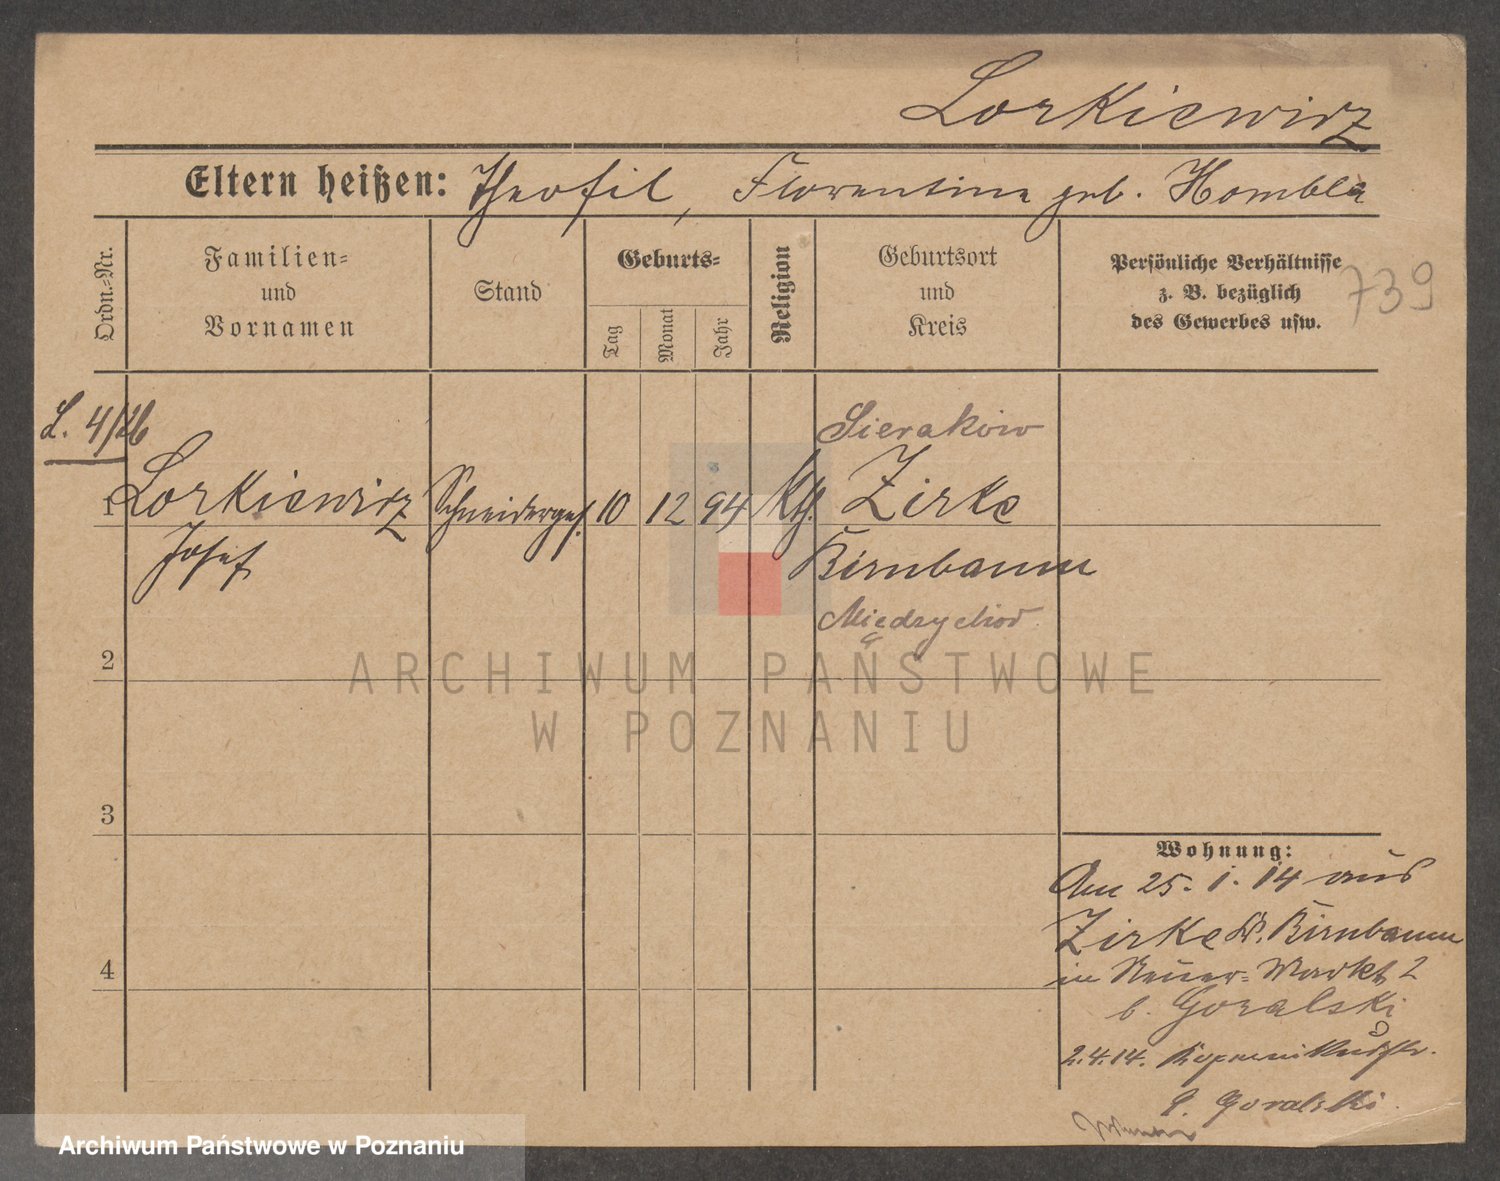 Lorkiewicz
Eltern heißen: Theofil, Florentine geb. Hombla
Ordn.=Nr.
Familien=
und
Vornamen
Stand
Geburts=
Tag
Monat
Jahr
Religion
Geburtsort
und
Kreis
Persönliche Verhältnisse
z. B. bezüglich
des Gewerbes usw.
739
L. 4/26
Sieraków
1 Lorkiewicz Schneiderges. 10 12 94 kth. Zirke
Josef Birnbaum
Międzychód
2
3
4
Wohnung:
Am 25. 1. 14 aus
Zirke Kr. Birnbaum
in Neuer=Markt 2
b. Goralski
2.4.14. Kopernikusstr.
b. Goralski.
ARCHIWUM PAŃSTWOWE
W POZNANIU
Archiwum Państwowe w Poznaniu